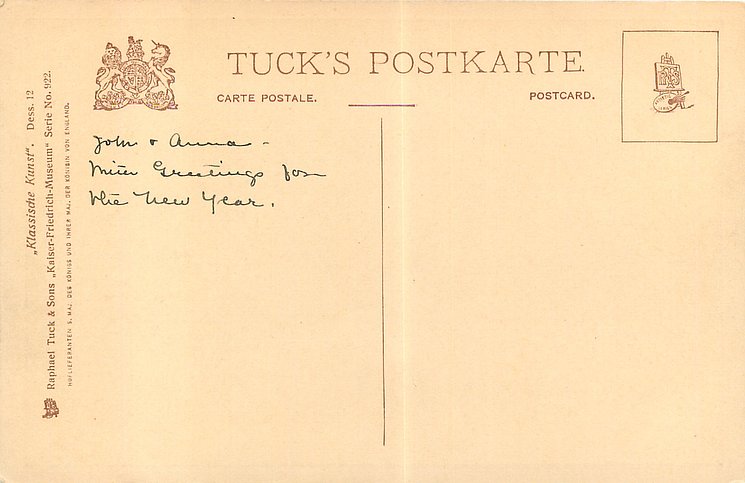 TUCK'S POSTKARTE.
CARTE POSTALE.
POSTCARD.
John + Anna -
With Greetings for
the New Year.
„Klassische Kunst“. Dess. 12
Raphael Tuck & Sons „Kaiser-Friedrich-Museum“ Serie No. 922.
HOFLIEFERANTEN S. MAJ. DES KÖNIGS UND IHRER MAJ. DER KÖNIGIN VON ENGLAND.